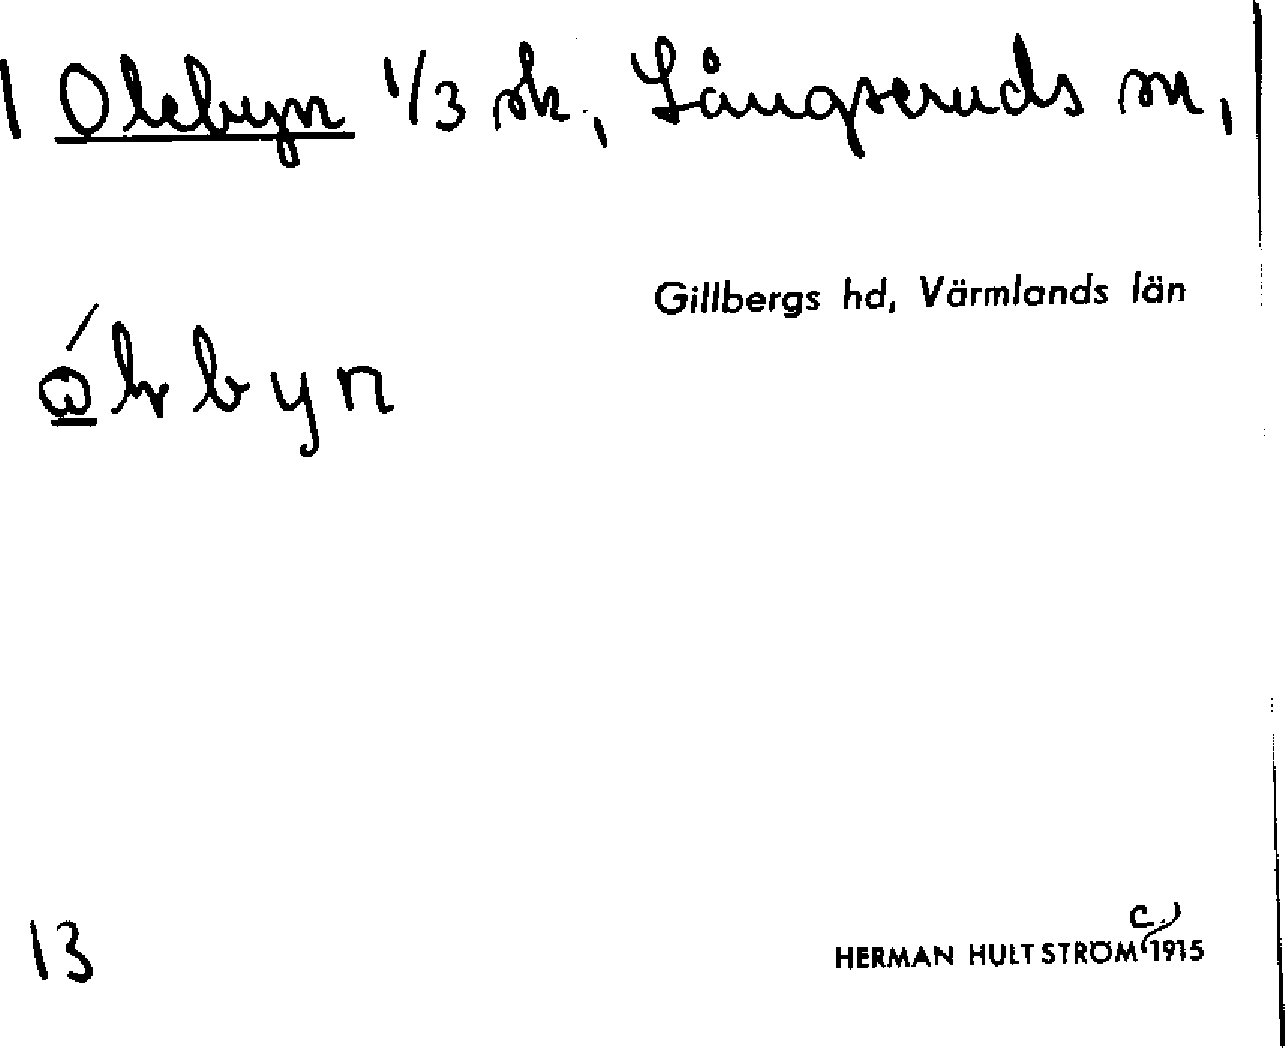 1 Olebyn 1/3 sk., Långseruds sn,
Gillbergs hd, Värmlands län
13
c.
HERMAN HULTSTRÖM 1915